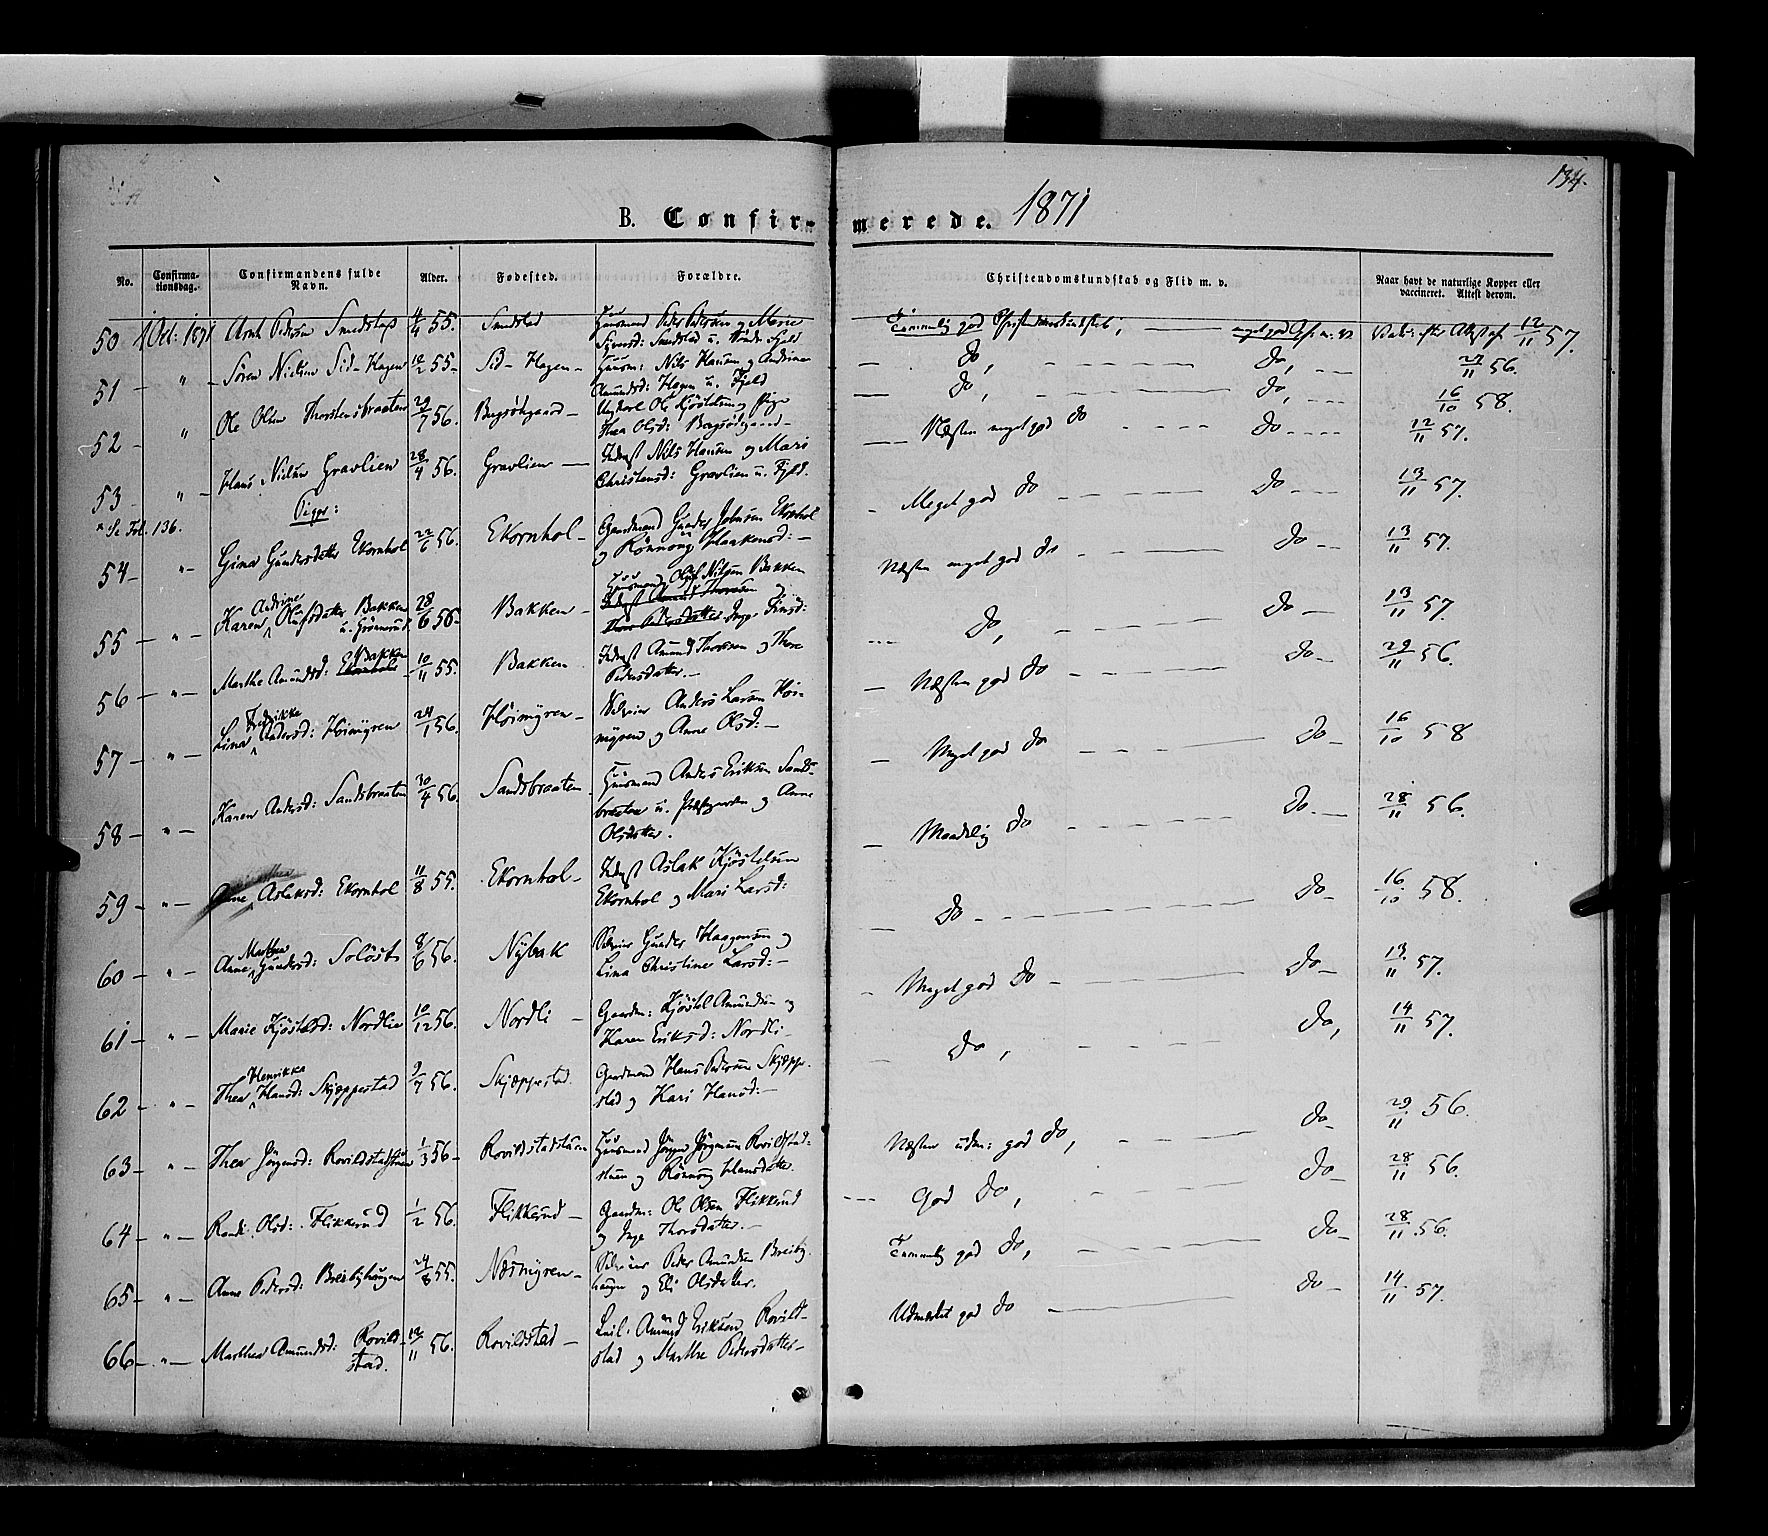 134.
B. Confirmerede. 1871
No. Confirmationsdag. Confirmandens fulde Navn. Alder. Fødested. Forældre. Christendomskundskab og Flid m. v. Naar havt de naturlige Kopper eller vaccineret. Attest derom.
50 1 Oct: 1871 Pedersen Smedstad 4/4 55. Smedstad Huusmand Peder Pedersen og Marie
Smedstad u. Fjeld
Temmelig god 12/11 57.
51 — " — Søren Nielsen Sid-Hagen 12/2 55 — Sid-Hagen — Huusm: Nils Hansen og Andrine
Amundsd: Hagen u. Fjeld
— do, do, 27/11 56.
52 — " Ole Olsen Thorstensbraaten 29/7 56. Ungkarl Ole og Pige
Thea Olsd:
— do, do, 16/10 58.
53 — " — Hans Nielsen Gravlien 28/4 56. Gravlien — Inderst Nils Hansen og Mari
Christensd: Gravlien u. Fjeld.
— Næsten meget god do do 12/11 57.
Se Fol. 136. Piger:
54 — " — Gina Gundersdatter Ekornhol 22/6 56. Ekornhol — Gaardmand Gunder Ekornhol
og Rønnaug Haakensd: —
— Meget god do do 13/11 57.
55 — " — Karen Andrine Olufsdatter Bakken 28/6 56 — Bakken — Huusmand Oluf Nilsen Bakken
Inderst Amund Thoresen og
Thore Pedersdatter Inge
Næsten meget god do do 13/11 57.
56 — " — Marthe Amundsd: Bakken Ekornhol 10/11 55. Bakken Inderst Amund Thoresen og Thore
Pedersdatter. —
do, do 13/11 57.
57 — " — Lina Fredrikke Andersd: Høimyren 24/1 56. Høimyren — Selveier Anders Larsen Høi-
myren og Anne Olsd: —
— Næsten god do do — 29/11 56.
58 — " — Karen Andersd: Sandsbraaten 30/4 56. Sandsbraaten Huusmand Anders Eriksen Sands-
braaten u. Præstgaarden og Anne
Olsdatter.
— Meget god do do — 16/10 58
59 — " — Anne Aslaksd: Ekornhol 11/8 55. Ekornhol — Inderst Aslak Kjöstelsen
Ekornhol og Mari Larsd:
— Maadelig do do. — 28/11 56.
60 — " — Anne Marthea Gundersd: Soløst 8/6 56. Nybak Selveier Gunder Haagensen og
Lina Christine Larsd: —
— do — do — 16/10 58.
61 — " — Marie Kjöstelsd: Nordlie 10/12 56. Nordli — Gaardm: Kjöstel Amundsen og
Karen Eriksd: Nordli —
— Meget god do — do — 13/11 57.
62 — " — Thea Henrikka Hansd: Skjæppestad 9/7 56. Skjæppestad. Gaardmand Hans Pedersen Skjæppe-
stad og Kari Hansd: —
— do, do, 14/11 57.
63 — " — Thea Jørgensd: Rovildstadstuen 1/3 56 — Rovildstadstuen Huusmand Jörgen Jörgensen Rovildstad-
stuen og Rönnaug Hansdatter.
Næsten udm: god do, do — 29/11 56.
64 — " — Randi Olsd: Flikkerud 1/2 56. Flikkerud — Gaardm: Ole Olsen Flikkerud
og Inge Thorsdatter. —
God do, do — 28/11 56.
65 — " — Anne Pedersd: Breibyhaugen 24/8 55. Næsmyren — Selveier Peder Amundsen Breiby-
haugen og Eli Olsdatter.
Temmelig god do, do — 28/11 56.
66 — " — Marthea Amundsd: Rovildstad. 12/11 56. Rovildstad — Amund Eriksen Rovild-
stad og Marthe Pedersdatter —
Udmærket god do do — 14/11 57.